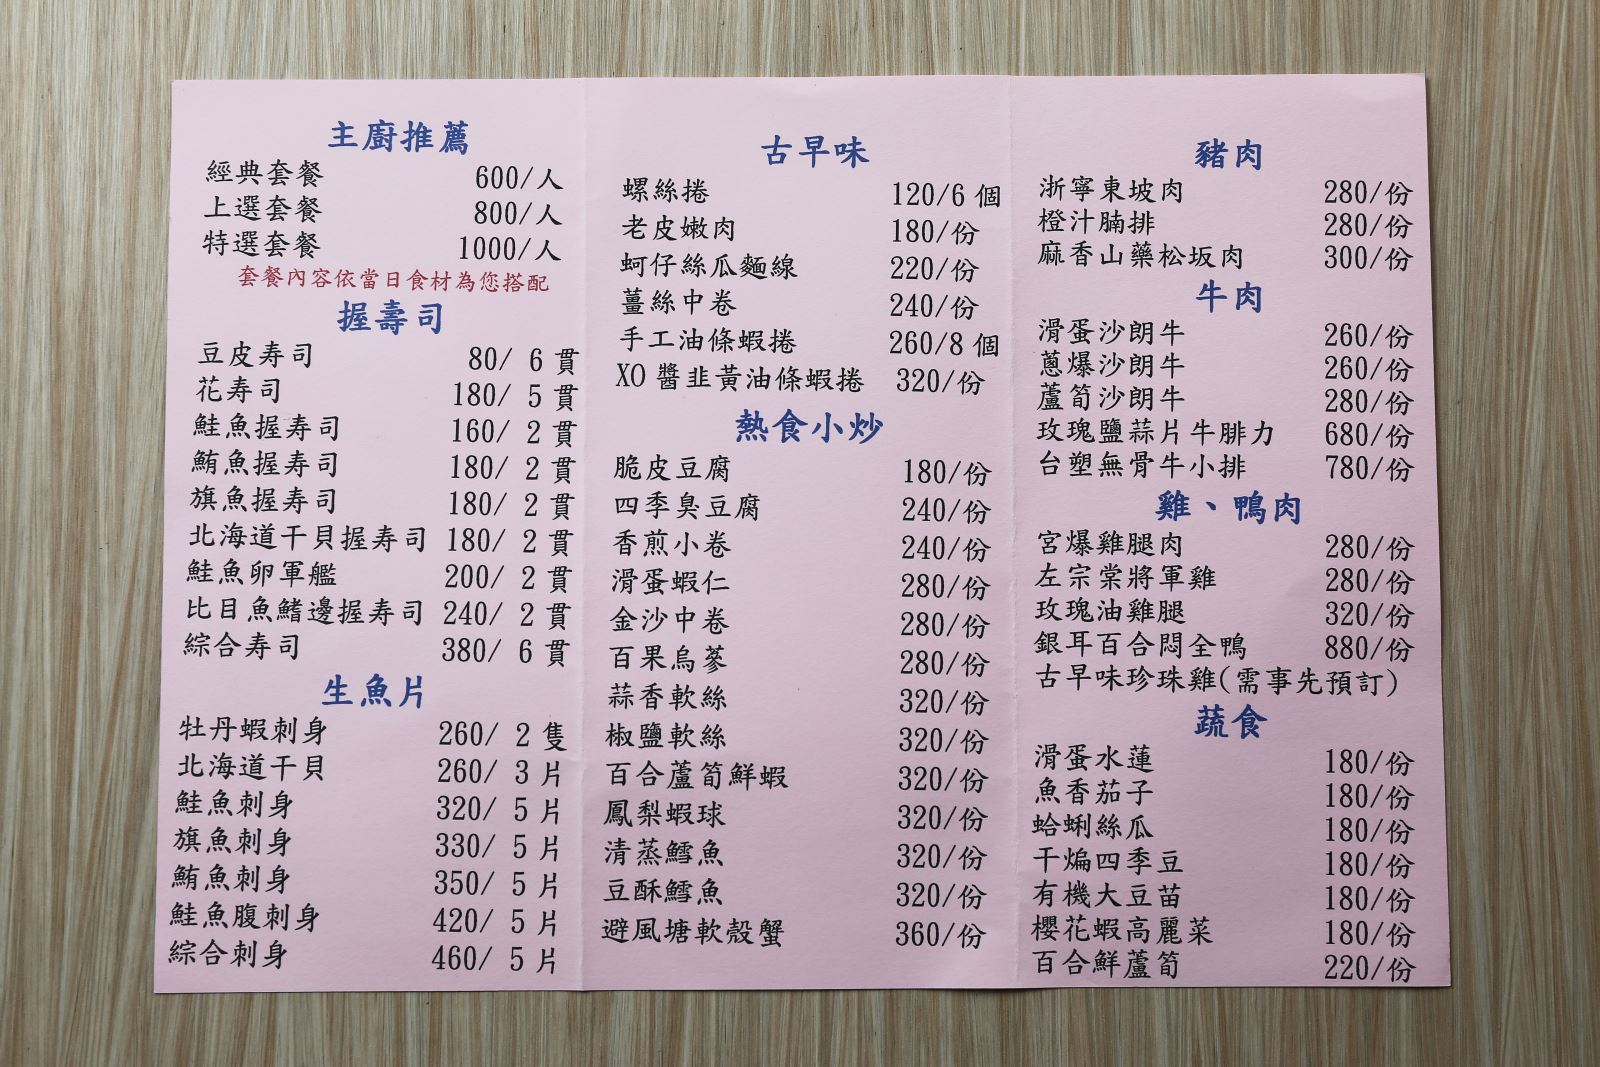 主廚推薦
經典套餐 600/人
上選套餐 800/人
特選套餐 1000/人
套餐內容依當日食材為您搭配
握壽司
豆皮寿司 80/ 6 貫
花寿司 180/ 5 貫
鮭魚握寿司 160/ 2 貫
鮪魚握寿司 180/ 2 貫
旗魚握寿司 180/ 2 貫
北海道干貝握寿司 180/ 2 貫
鮭魚卵軍艦 200/ 2 貫
比目魚鰭邊握寿司 240/ 2 貫
綜合寿司 380/ 6 貫
生魚片
牡丹蝦刺身 260/ 2 隻
北海道干貝 260/ 3 片
鮭魚刺身 320/ 5 片
旗魚刺身 330/ 5 片
鮪魚刺身 350/ 5 片
鮭魚腹刺身 420/ 5 片
綜合刺身 460/ 5 片
古早味
螺絲捲 120/6 個
老皮嫩肉 180/份
蚵仔絲瓜麵線 220/份
薑絲中卷 240/份
手工油條蝦捲 260/8 個
XO 醬韭黃油條蝦捲 320/份
熱食小炒
脆皮豆腐 180/份
四季臭豆腐 240/份
香煎小卷 240/份
滑蛋蝦仁 280/份
金沙中卷 280/份
百果烏蔘 280/份
蒜香軟絲 320/份
椒鹽軟絲 320/份
百合蘆筍鮮蝦 320/份
鳳梨蝦球 320/份
清蒸鱈魚 320/份
豆酥鱈魚 320/份
避風塘軟殼蟹 360/份
豬肉
浙寧東坡肉 280/份
橙汁腩排 280/份
麻香山藥松坂肉 300/份
牛肉
滑蛋沙朗牛 260/份
蔥爆沙朗牛 260/份
蘆筍沙朗牛 280/份
玫瑰鹽蒜片牛腓力 680/份
台塑無骨牛小排 780/份
雞、鴨肉
宮爆雞腿肉 280/份
左宗棠將軍雞 280/份
玫瑰油雞腿 320/份
銀耳百合悶全鴨 880/份
古早味珍珠雞(需事先預訂)
蔬食
滑蛋水蓮 180/份
魚香茄子 180/份
蛤蜊絲瓜 180/份
干煸四季豆 180/份
有機大豆苗 180/份
櫻花蝦高麗菜 180/份
百合鮮蘆筍 220/份